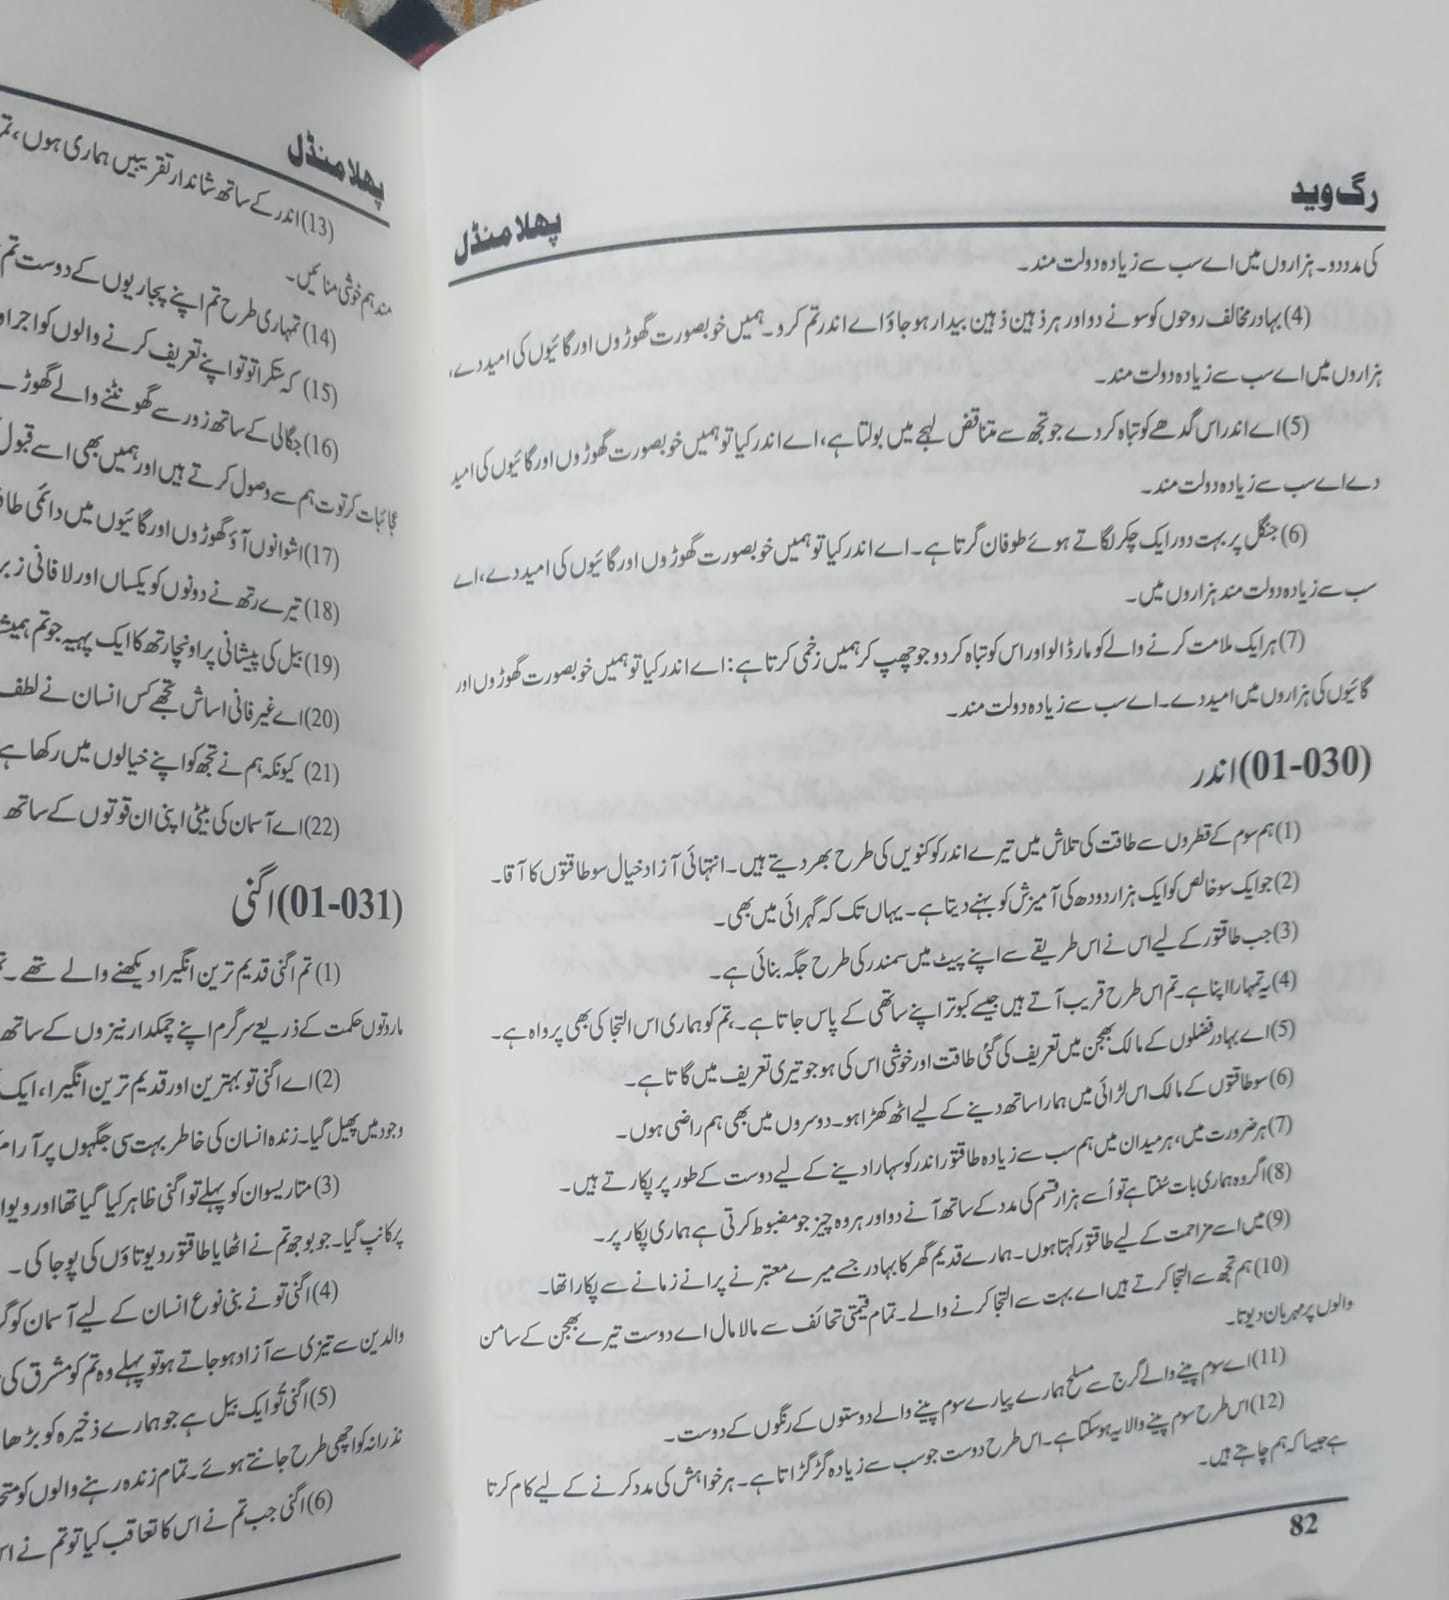 رگ وید
پھلا منڈل
کی مدد دو۔ ہزاروں میں اے سب سے زیادہ دولت مند۔
(4) بہادر مخالف روحوں کو سونے دو اور ہر ذہین ذہین بیدار ہو جاؤ اے اندر تم کرو۔ ہمیں خوبصورت گھوڑوں اور گائیوں کی امید دے،
ہزاروں میں اے سب سے زیادہ دولت مند۔
(5) اے اندر اس گدھے کو تباہ کر دے جو تجھ سے متناقض لہجے میں بولتا ہے، اے اندر کیا تو ہمیں خوبصورت گھوڑوں اور گائیوں کی امید
دے اے سب سے زیادہ دولت مند۔
(6) جنگل پر بہت دور ایک چکر لگاتے ہوئے طوفان گرتا ہے۔ اے اندر کیا تو ہمیں خوبصورت گھوڑوں اور گائیوں کی امید دے، اے
سب سے زیادہ دولت مند ہزاروں میں۔
(7) ہر ایک ملامت کرنے والے کو مار ڈالو اور اس کو تباہ کر دو جو چھپ کر ہمیں زخمی کرتا ہے: اے اندر کیا تو ہمیں خوبصورت گھوڑوں اور
گائیوں کی ہزاروں میں امید دے۔ اے سب سے زیادہ دولت مند۔
(01-030) اندر
(1) ہم سوم کے قطروں سے طاقت کی تلاش میں تیرے اندر کو کنویں کی طرح بھر دیتے ہیں۔ انتہائی آزاد خیال سو طاقتوں کا آقا۔
(2) جو ایک سو خالص کو ایک ہزار دودھ کی آمیزش کو بہنے دیتا ہے۔ یہاں تک کہ گہرائی میں بھی۔
(3) جب طاقتور کے لیے اس نے اس طریقے سے اپنے پیٹ میں سمندر کی طرح جگہ بنائی ہے۔
(4) یہ تمہارا اپنا ہے۔ تم اس طرح قریب آتے ہیں جیسے کبوتر اپنے ساتھی کے پاس جاتا ہے۔، تم کو ہماری اس التجا کی بھی پرواہ ہے۔
(5) اے بہادر فضلوں کے مالک بھجن میں تعریف کی گئی طاقت اور خوشی اس کی ہو جو تیری تعریف میں گاتا ہے۔
(6) سو طاقتوں کے مالک اس لڑائی میں ہمارا ساتھ دینے کے لیے اٹھ کھڑا ہو۔ دوسروں میں بھی ہم راضی ہوں۔
(7) ہر ضرورت میں، ہر میدان میں ہم سب سے زیادہ طاقتور اندر کو سہارا دینے کے لیے دوست کے طور پر پکارتے ہیں۔
(8) اگر وہ ہماری بات سُنتا ہے تو اُسے ہزار قسم کی مدد کے ساتھ آنے دو اور ہر وہ چیز جو مضبوط کرتی ہے ہماری پکار پر۔
(9) میں اسے مزاحمت کے لیے طاقتور کہتا ہوں۔ ہمارے قدیم گھر کا بہادر جسے میرے معتبر نے پرانے زمانے سے پکارا تھا۔
(10) ہم تجھ سے التجا کرتے ہیں اے بہت سے التجا کرنے والے۔ تمام قیمتی تحائف سے مالا مال اے دوست تیرے بھجن کے سامن
والوں پر مہربان دیوتا۔
(11) اے سوم پینے والے گرج سے مسلح ہمارے پیارے سوم پینے والے دوستوں کے رنگوں کے دوست۔
(12) اس طرح سوم پینے والا یہ ہو سکتا ہے۔ اس طرح دوست جو سب سے زیادہ گڑگڑاتا ہے۔ ہر خواہش کی مدد کرنے کے لیے کام کرتا
ہے جیسا کہ ہم چاہتے ہیں۔
82
پھلا منڈل
(13) اندر کے ساتھ شاندار تقریبیں ہماری ہوں،
مند ہم خوشی منائیں۔
(14) تمہاری طرح تم اپنے پجاریوں کے دوست تم
(15) کہ ستکراتو تو اپنے تعریف کرنے والوں کو اجر
(16) جگالی کے ساتھ زور سے گھونٹنے والے گھوڑے
عجائبات کرتوت ہم سے وصول کرتے ہیں اور ہمیں بھی اسے قبول
(17) اشوانوں آؤ گھوڑوں اور گائیوں میں دائمی
(18) تیرے رتھ نے دونوں کو یکساں اور لافانی
(19) بیل کی پیشانی پر اونچا رتھ کا ایک پہیہ جو تم
(20) اے غیر فانی اساش تجھے کس انسان نے لطف
(21) کیونکہ ہم نے تجھ کو اپنے خیالوں میں رکھا ہے
(22) اے آسمان کی بیٹی اپنی ان قوتوں کے ساتھ
(01-031) اگنی
(1) تم اگنی قدیم ترین انگیرا دیکھنے والے تھے۔
ماروتوں حکمت کے ذریعے سرگرم اپنے چمکدار نیزوں کے ساتھ
(2) اے اگنی تو بہترین اور قدیم ترین انگیرا، ایک
وجود میں پھیل گیا۔ زندہ انسان کی خاطر بہت سی جگہوں پر آرام
(3) متاریسوان کو پہلے تو اگنی ظاہر کیا گیا تھا اور
پر کانپ گیا۔ جو بوجھ تم نے اٹھایا طاقتور دیوتاؤں کی پوجا کی۔
(4) اگنی تو نے بنی نوع انسان کے لیے آسمان کو
والدین سے تیزی سے آزاد ہو جاتے ہو تو پہلے وہ تم کو مشرق کی
(5) اگنی تُو ایک بیل ہے جو ہمارے ذخیرہ کو بڑھا
نذرانہ کو اچھی طرح جانتے ہوئے۔ تمام زندہ رہنے والوں کو
(6) اگنی جب تم نے اس کا تعاقب کیا تو تم نے